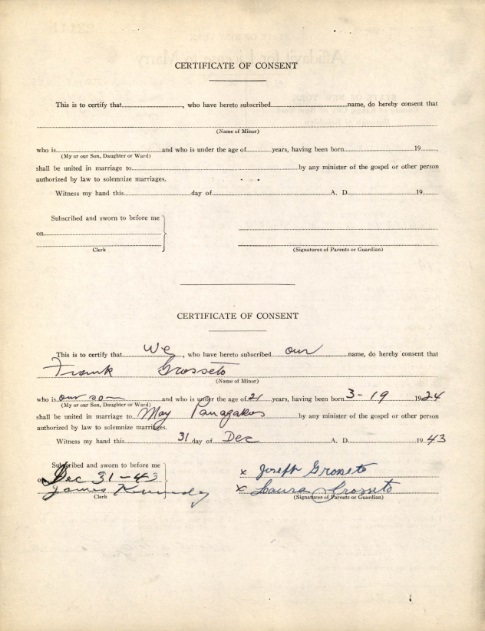 CERTIFICATE OF CONSENT
This is to certify that, who have hereto subscribed name, do hereby consent that
(Name of Minor)
who is and who is under the age of years, having been born 19
(My or our Son, Daughter or Ward)
shall be united in marriage to by any minister of the gospel or other person
authorized by law to solemnize marriages.
Witness my hand this day of A. D. 19
Subscribed and sworn to before me
on
Clerk
(Signatures of Parents or Guardian)
CERTIFICATE OF CONSENT
This is to certify that We, who have hereto subscribed our name, do hereby consent that
Frank Grosseto
(Name of Minor)
who is our son and who is under the age of 21 years, having been born 3-19 1924
(My or our Son, Daughter or Ward)
shall be united in marriage to May Panagakos by any minister of the gospel or other person
authorized by law to solemnize marriages.
Witness my hand this 31 day of Dec A. D. 1943
Subscribed and sworn to before me
on Dec 31-43
James Kennedy
Clerk
x Joseph Grosseto
x Laura Grosseto
(Signatures of Parents or Guardian)